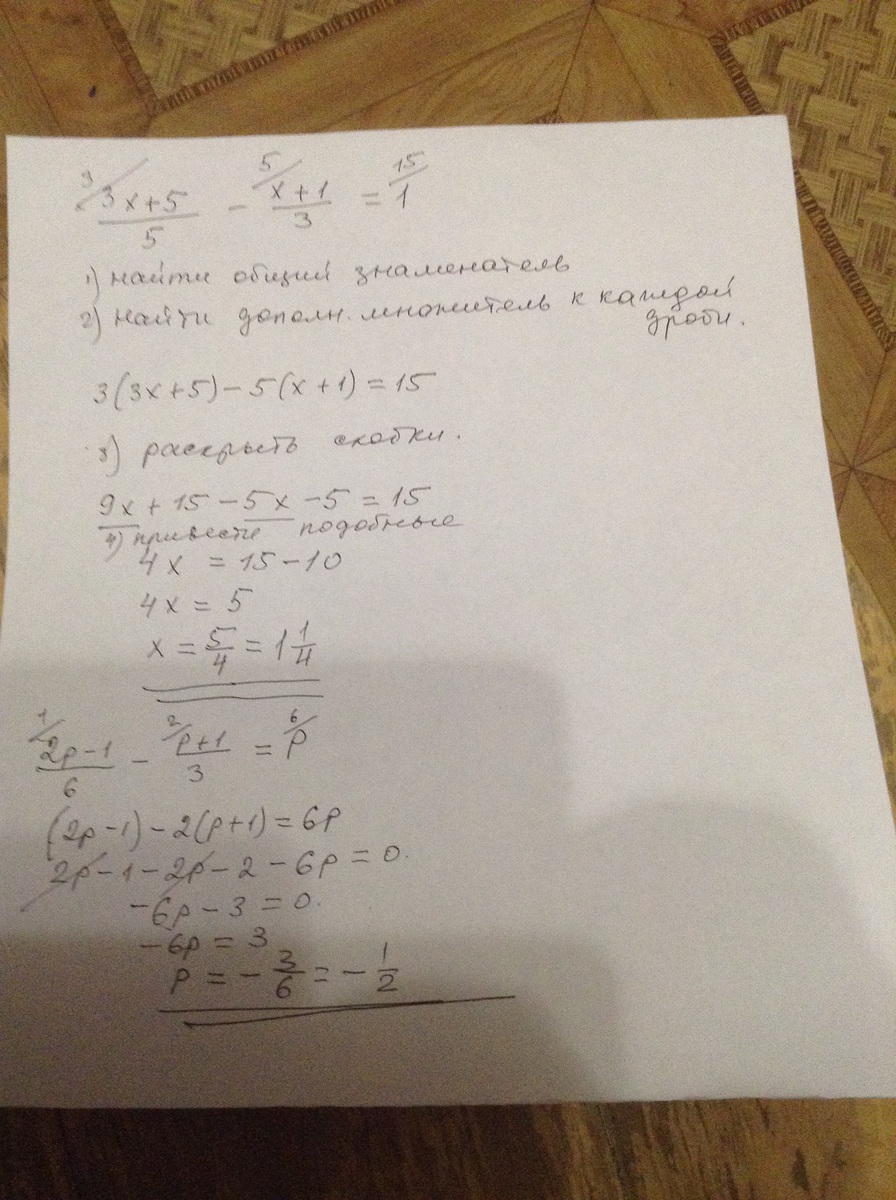 3/ 3x+5/5 - 5/ x+1/3 = 15/ 1
1) найти общий знаменатель
2) найти дополн. множитель к каждой
дроби.
3(3x+5)-5(x+1)=15
3) раскрыть скобки.
9x+15-5x-5=15
4) привести подобные
4x = 15-10
4x = 5
x = 5/4 = 1 1/4
1/ 2p-1/6 - 2/ p+1/3 = 6/ p
(2p-1)-2(p+1)=6p
2p-1-2p-2-6p=0.
-6p-3=0.
-6p=3
p = -3/6 = -1/2